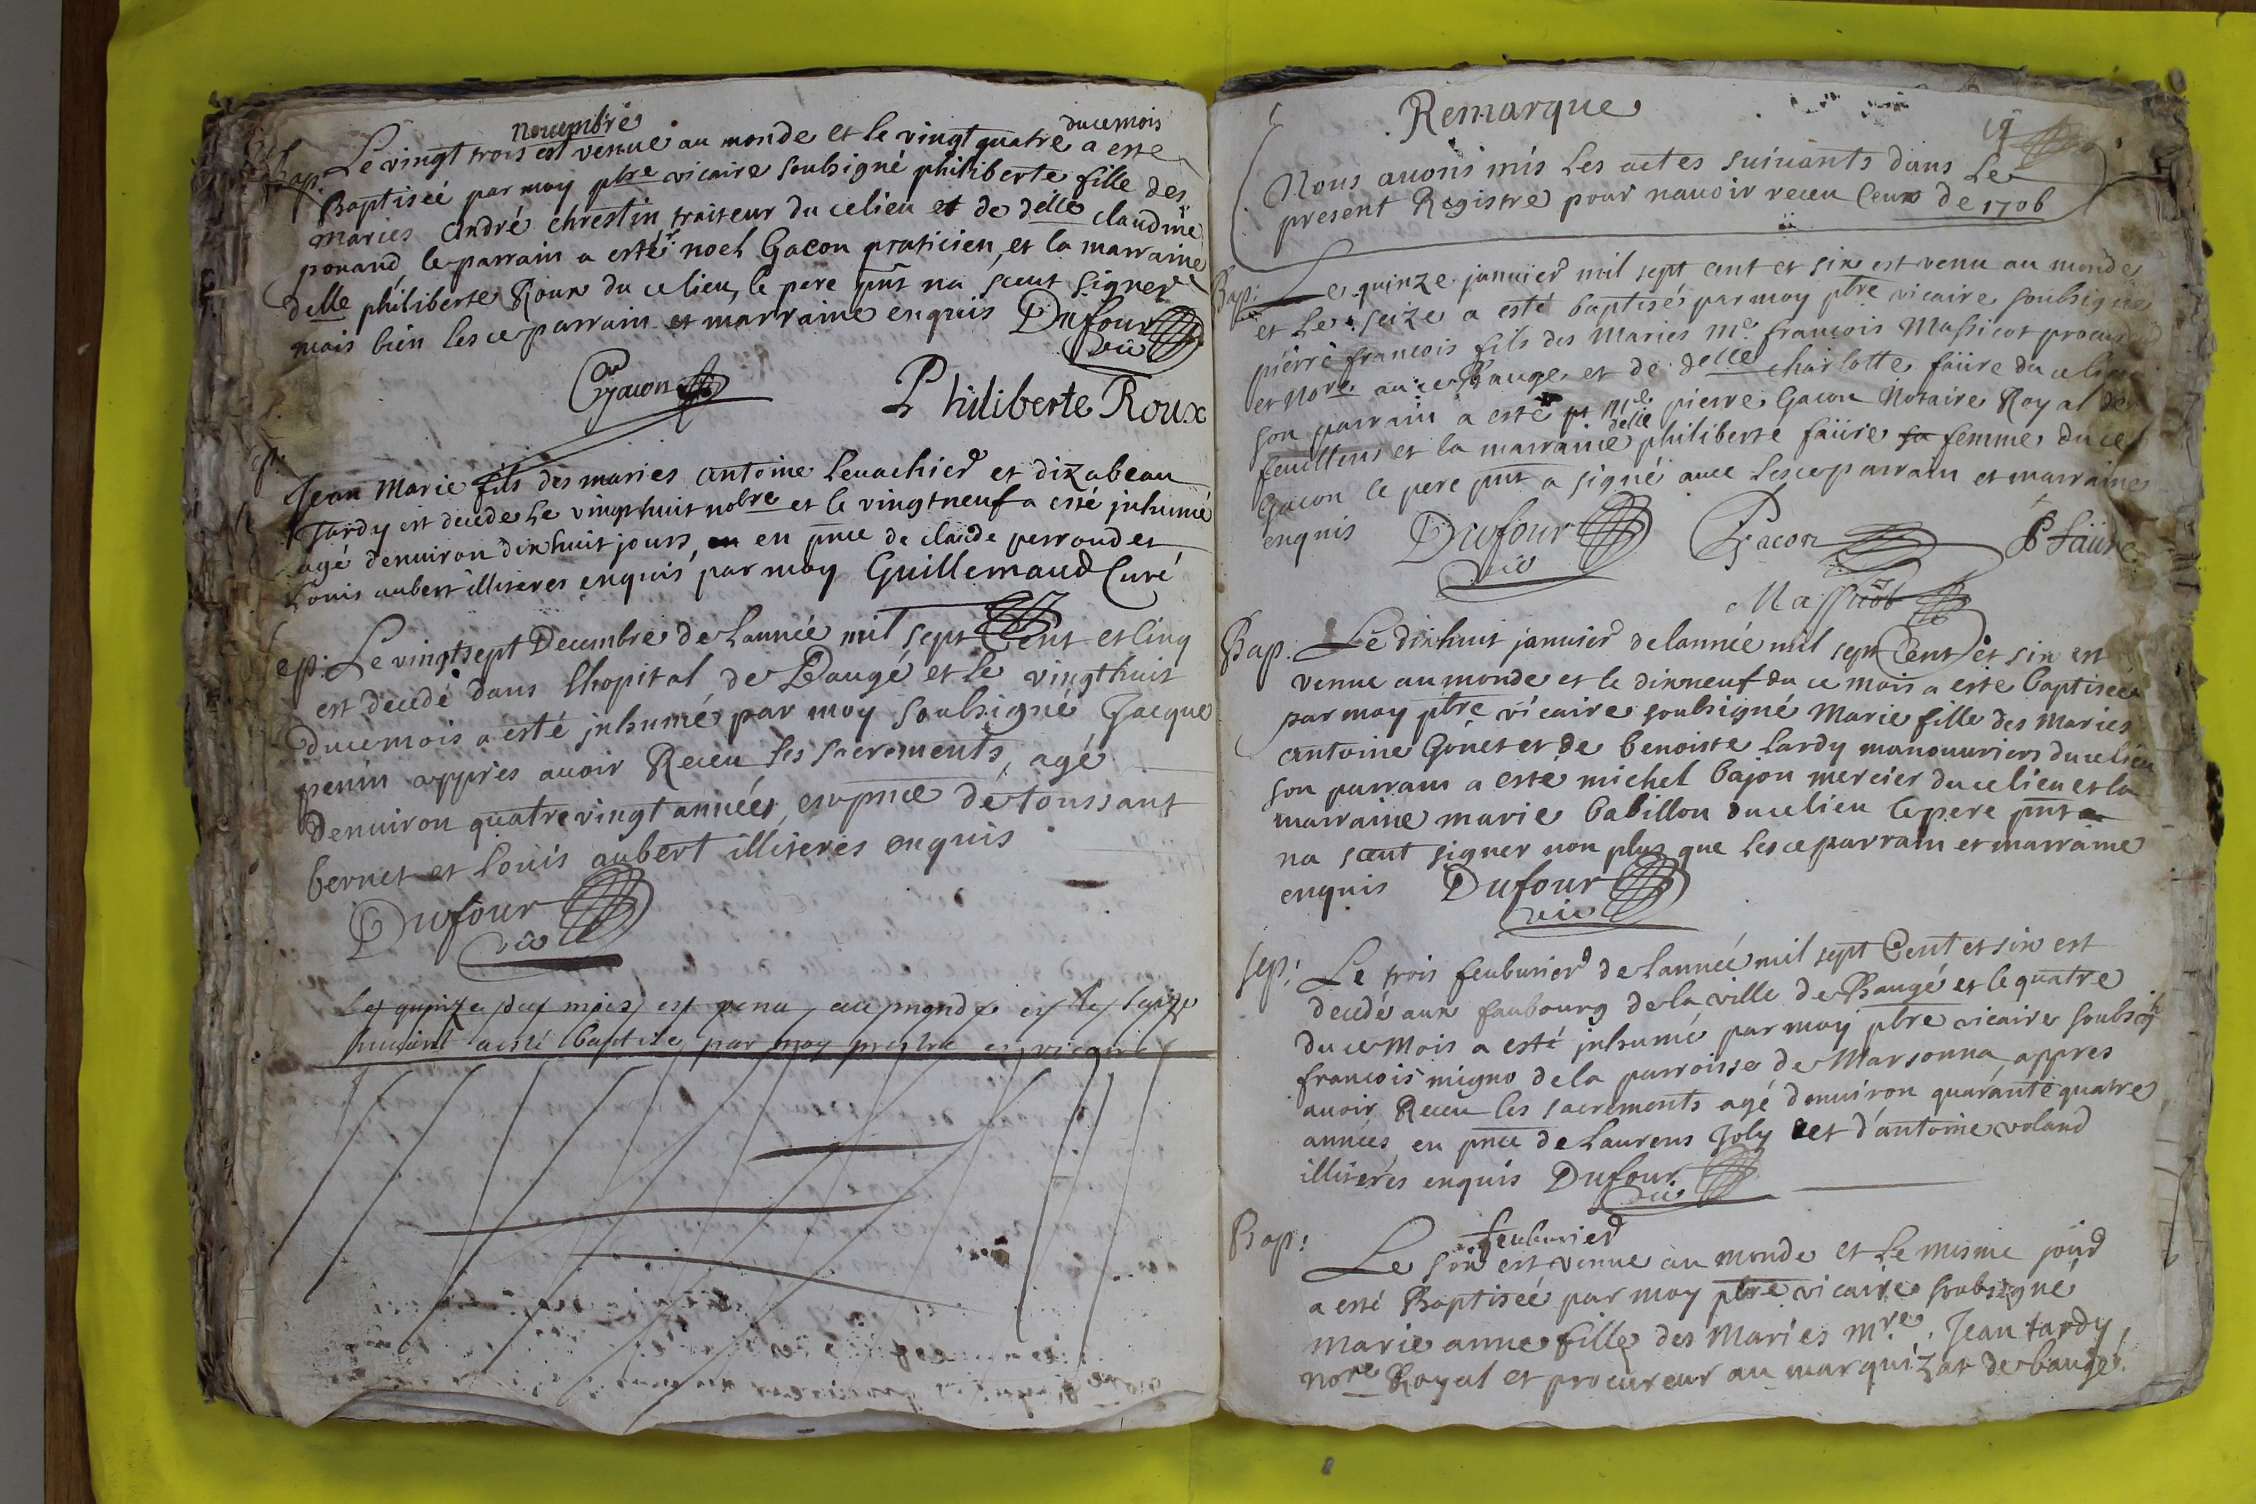 novembre
ducemois
Bap. Le vingt trois est venue au monde et le vingt quatre a esté
Baptiseé par moy pbre vicaire soubsigné philiberte fille des
maries André chrestin traiteur du ce lieu et de delle claudine
ponand, le parrain a esté noel Gacon praticien, et la marraine
delle philiberte Roux du ce lieu, le pere pnt na sceut signer
mais bien lesce parrain et marraine enquis Dufour
vic
Gacon
Philiberte Roux
Jean Marie fils des maries antoine levachier et dizabeau
Tardy est decede le vingt huit nobre et le vingtneuf a esté inhumé
agé denuiron dix huit jours, en pnce de claude perroud et
Louis aubert illiteres enquis par moy Guillemaud Curé
Sep. Le vingtsept Decembre de lannée mil sept Cent et cinq
est decedé dans lhopital de Baugé et le vingthuit
ducemois a esté inhumé par moy soubsigné Jacque
penin appres avoir Receu les sacrements, agé
denuiron quatre vingt années, en pnce de toussant
bernet et Louis aubert illiteres enquis
Dufour
vic
Le quinze du mois est venu au monde et le seize
suivant a esté baptise par moy prestre et vicaire
Remarque
Nous avons mis les actes suivants dans le
present Registre pour navoir receu ceux de 1706
Bap: Le quinze janvier mil sept cent et six est venu au monde
et le seize a esté baptisé par moy pbre vicaire soubsigné
pierre francois fils des Maries me francois Massicot procureur
et nore au ce Bauge et de delle charlotte faüre du ce lieu
son parrain a esté me pierre Gacon Notaire Royal de
feuillens et la marraine delle philiberte faüre sa femme du ce
Gacon le pere pnt a signé avec lesce parrain et marraine
enquis Dufour Gacon P faüre
vic
Massicot
Bap. Le dixhuit janvier de lannée mil sept Cent et six est
venue au monde et le dixneuf du ce mois a esté baptiseé
par moy pbre vicaire soubsigné Marie fille des Maries
antoine Gonet et de benoiste Lardy manouvriers du ce lieu
son parrain a esté michel bajon mercier du ce lieu et la
marraine marie babillon du ce lieu le pere pnt
na sceut signer non plus que lesce parrain et marraine
enquis Dufour
vic
Sep: Le trois feuburier de lannée mil sept Cent et six est
decedé aux faubourg de la ville de Baugé et le quatre
du ce mois a esté inhumé par moy pbre vicaire soubsig
francois migno de la parroisse de Marsonna appres
avoir Receu les sacrements agé denuiron quarante quatre
années, en pnce de Laurens Joly et d'antoine voland
illiterés enquis Dufour
vic
feuburier
Bap: Le six est venue au monde et le mesme jour
a esté Baptiseé par moy pbre vicaire soubsigné
marie anne fille des Maries mre. Jean tardy
nore Royal et procureur au marquizat de baugé.